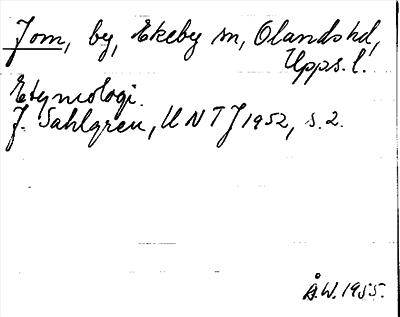 Jom, by, Ekeby sn, Olandshd,
Upps. l.
Etymologi.
J. Sahlgren, UNTJ 1952, s. 2.
Å.W. 1955.